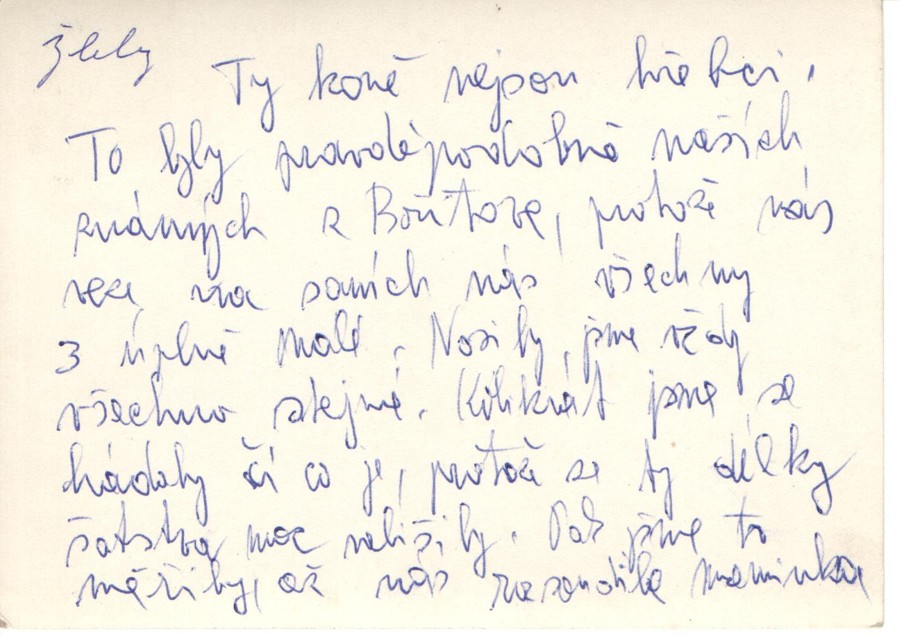 Žleby
Ty koně nejsou hřebci.
To byly pravděpodobně našich
známých z Bořitova, protože nás
veze na saních nás všechny
3 úplně malé. Nosily jsme vždy
všechno stejné. Kolikrát jsme se
hádaly čí co je, protože se ty délky
šatstva moc nelišily. Pak jsme to
měřily, až nás rozsoudila maminka